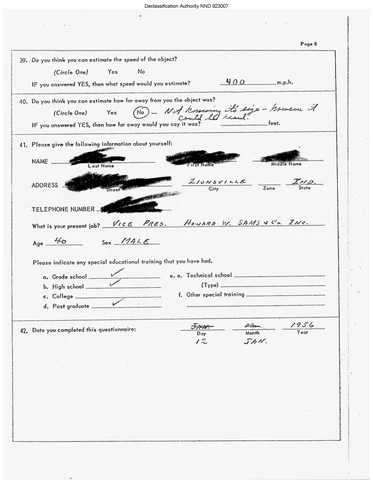 Declassification Authority NND 923007
Page 8
39. Do you think you can estimate the speed of the object?
(Circle One) Yes No
IF you answered YES, then what speed would you estimate? 400 m.p.h.
40. Do you think you can estimate how far away from you the object was?
(Circle One) Yes No – Not knowing its size – however it could be heard.
IF you answered YES, then how far away would you say it was? feet.
41. Please give the following information about yourself:
NAME
Last Name First Name Middle Name
ADDRESS ZIONSVILLE IND.
Street City Zone State
TELEPHONE NUMBER
What is your present job? VICE PRES. HOWARD W. SAMS & Co. INC.
Age 40 Sex MALE
Please indicate any special educational training that you have had.
a. Grade school ✓ e. Technical school
b. High school ✓ (Type)
c. College f. Other special training
d. Post graduate ✓
42. Date you completed this questionnaire: 1956
Day Month Year
12 JAN.